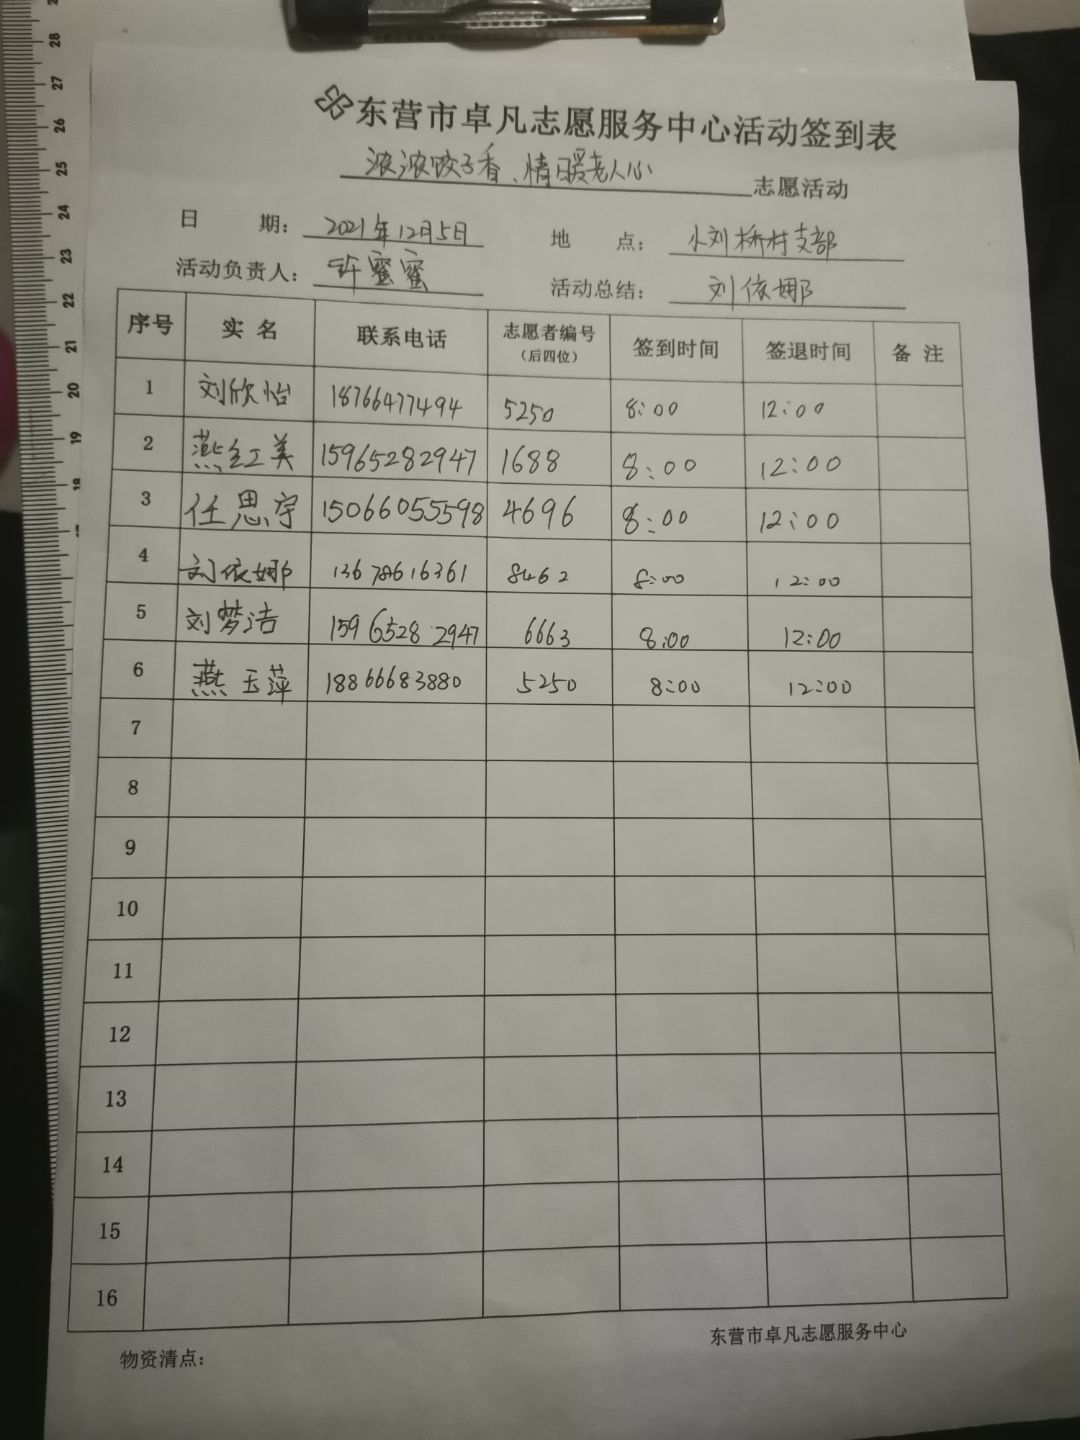 东营市卓凡志愿服务中心活动签到表
浓浓饺子香、情暖老人心 志愿活动
日 期: 2021年12月5日 地 点: 小刘桥村支部
活动负责人: 许蜜蜜 活动总结: 刘依娜
序号 实名 联系电话 志愿者编号(后四位) 签到时间 签退时间 备注
1 刘欣怡 18766477494 5250 8:00 12:00
2 燕红美 15965282947 1688 8:00 12:00
3 任思宇 15066055598 4696 8:00 12:00
4 刘依娜 13678616361 8462 8:00 12:00
5 刘梦洁 15965282947 6663 8:00 12:00
6 燕玉萍 18866683880 5250 8:00 12:00
7
8
9
10
11
12
13
14
15
16
物资清点: 东营市卓凡志愿服务中心
28
27
26
25
24
23
22
21
20
19
18